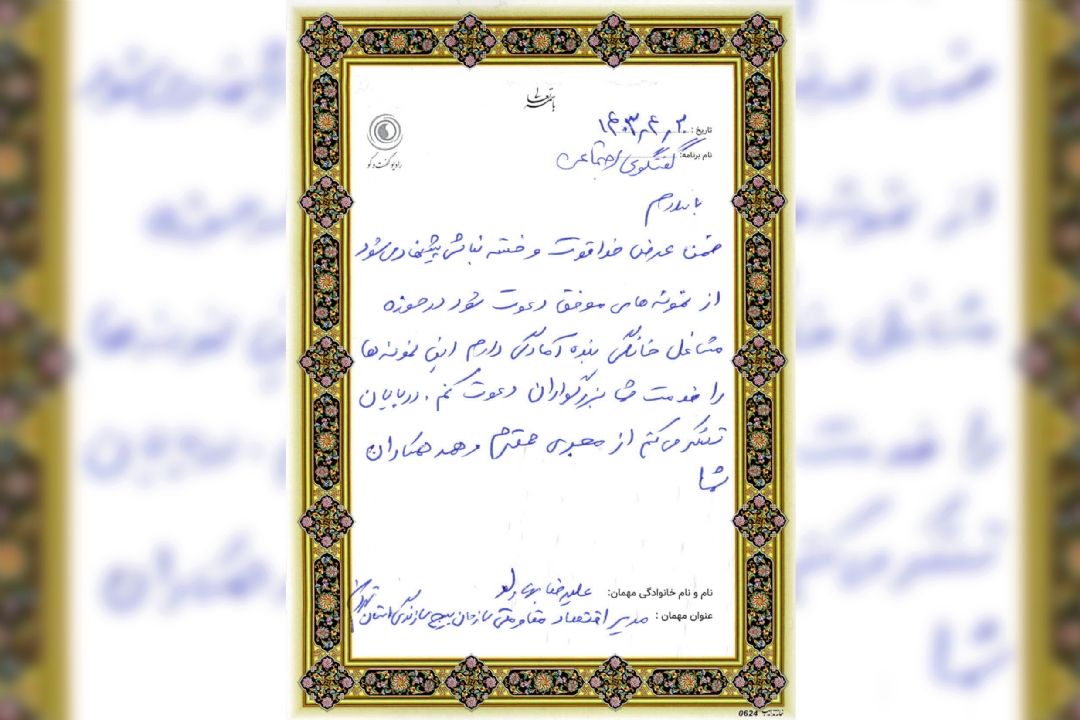 باسمه تعالی
رادیو گفت و گو
تاریخ: ۱۴۰۳٫۴٫۲۰
نام برنامه: گفتگوی اجتماعی
با سلام
ضمن عرض خدا قوت و خسته نباشی پیشنهاد می‌شود
از نمونه های موفق دعوت شود در حوزه
مشاغل خانگی بنده آمادگی دارم این نمونه ها
را خدمت شما بزرگواران دعوت کنم . در پایان
تشکر می کنم از مجری محترم و همه همکاران
شما
نام و نام خانوادگی مهمان: علیرضا
عنوان مهمان : مدیر اقتصاد مقاومتی سازمان بسیج سازندگی استان تهران
0624